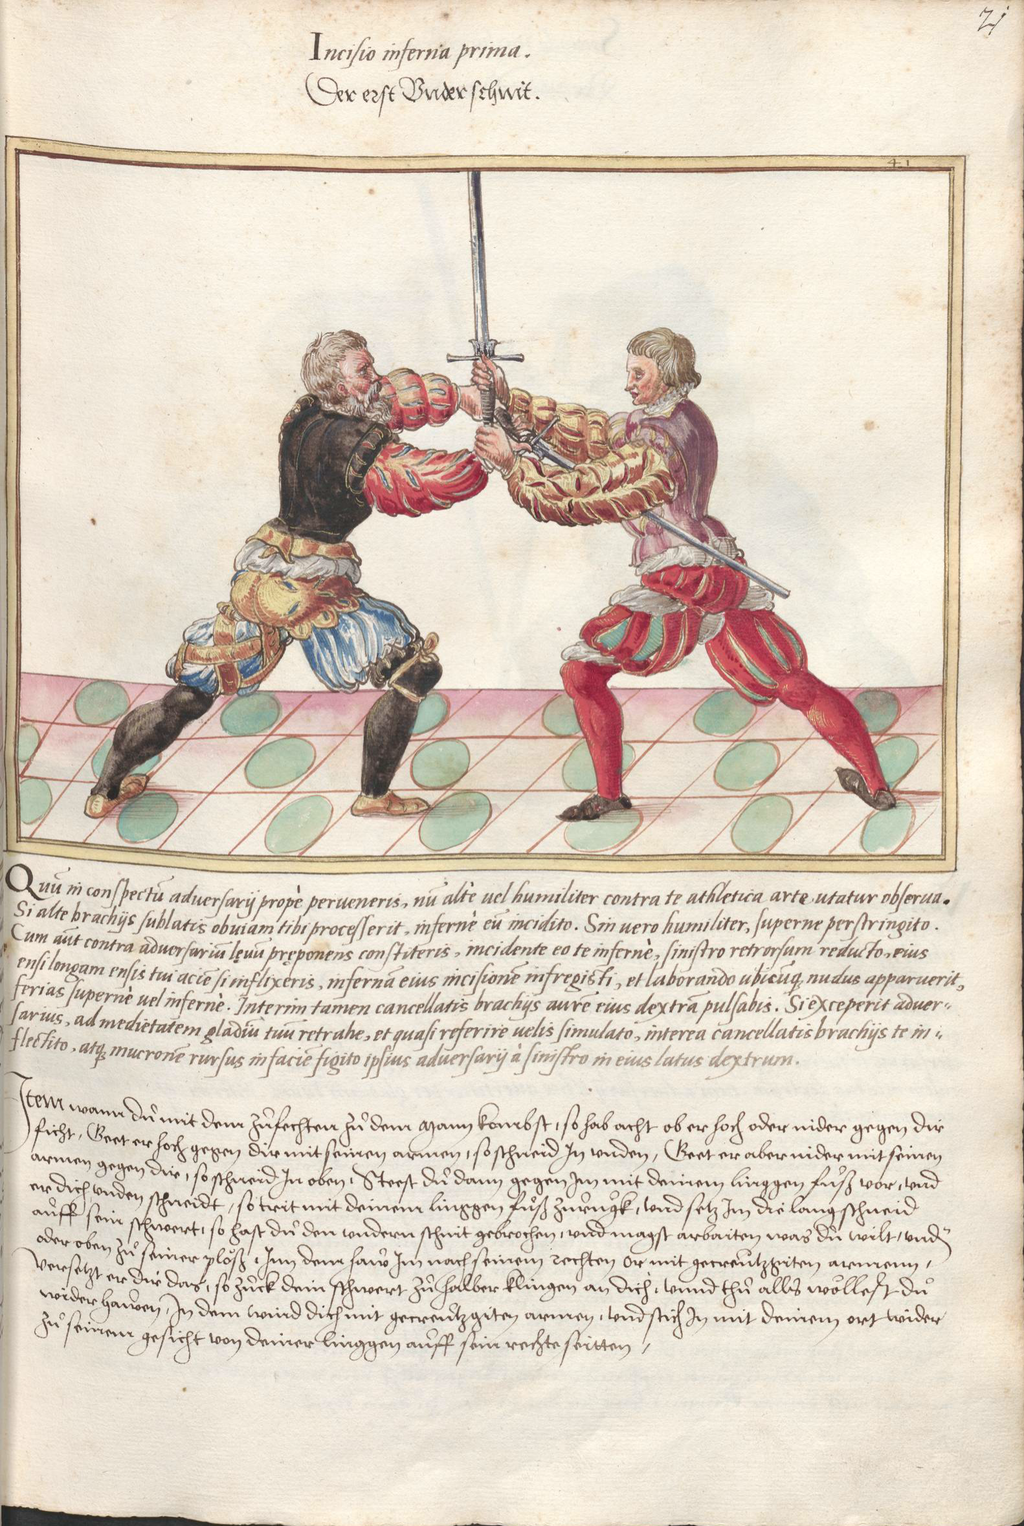 21
Incisio inferna prima.
Der erst Vnderschnit.
41
Quũ in conspectũ adversarij propè perveneris, nũ altè vel humiliter contra te athletica arte utatur observa.
Si alte brachijs sublatis obviam tibi processerit, infernè eũ incidito. Sin vero humiliter, superne perstringito.
Cum aũt contra adversarium lęvũ pręponens constiteris, incidente eo te infernè, sinistro retrorsum reducto, eius
ensi longam ensis tui aciẽ si inflixeris, infernã eius incisionẽ infregisti, et laborando ubicuq, nudus apparuerit,
ferias supernè vel infernè. Interim tamen cancellatis brachijs aurẽ eius dextrã pulsabis. Si exceperit adver=
sarius, ad medietatem gladiũ tuũ retrahe, et quasi referire velis simulato, interea cancellatis brachijs te in=
flectito, atq, mucronẽ rursus in faciẽ figito ipsius adversarij à sinistro in eius latus dextrum.
Item wann dů mit dem zůfechten zů dem Mann kombst, so hab acht ob er hoch oder nider gegen dir
ficht, Geet er hoch gegen dir mit seinen armen, so schneid In vnden, Geet er aber nider mit seinen
armen gegen dir, so schneid In oben, Steest dů dann gegen Im mit deinem linggen fůß vor, vnd
er dich vnden schneidt, so trit mit deinem linggen fůß zurugk, vnd setz Im die lang schneid
auff sein schwert, so hast dů den vndern schnit gebrochen, vnd magst arbaiten was dů wilt, vnden
oder oben zů seiner plöß, Inn dem haw Im nach seinem rechten or mit gecreutzgiten armenn,
Versetzt er dir das, so zuck dein schwert zů halber klingen an dich, vnnd thů alls wöllest dů
wider hawen, In dem wind dich mit gecreutzgiten armen, vnd stich In mit deinem ort wider
zů seinem gesicht von deiner linggen auff sein rechte seitten,